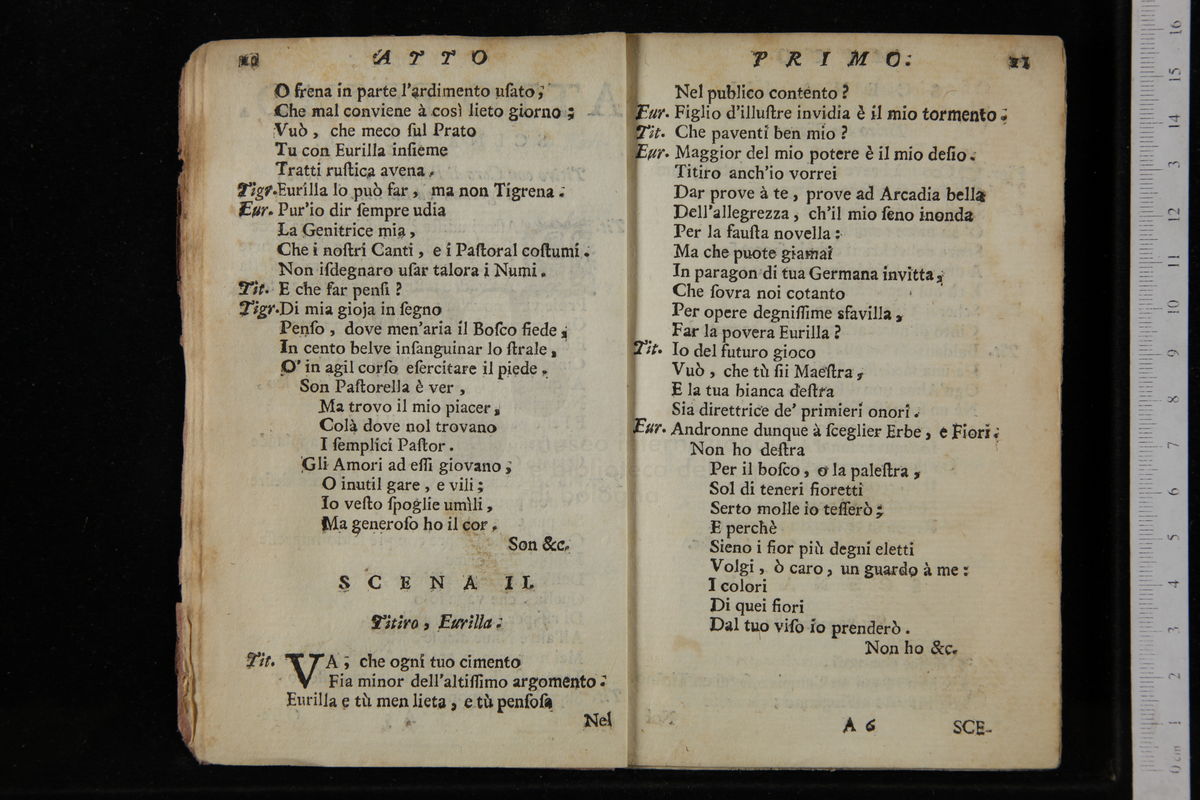 10 ATTO
O frena in parte l'ardimento uſato;
Che mal conviene à così lieto giorno;
Vuò, che meco ſul Prato
Tu con Eurilla inſieme
Tratti ruſtica avena.
Tigr. Eurilla lo può far, ma non Tigrena.
Eur. Pur'io dir ſempre udia
La Genitrice mia,
Che i noſtri Canti, e i Paſtoral coſtumi.
Non iſdegnaro uſar talora i Numi.
Tit. E che far penſi?
Tigr. Di mia gioja in ſegno
Penſo, dove men'aria il Boſco ſiede,
In cento belve inſanguinar lo ſtrale,
O' in agil corſo eſercitare il piede.
Son Paſtorella è ver,
Ma trovo il mio piacer,
Colà dove nol trovano
I ſemplici Paſtor.
Gli Amori ad eſſi giovano;
O inutil gare, e vili;
Io veſto ſpoglie umìli,
Ma generoſo ho il cor.
Son &c.
SCENA II.
Titiro, Eurilla.
Tit. VA; che ogni tuo cimento
Fia minor dell'altiſſimo argomento.
Eurilla e tù men lieta, e tù penſoſa
Nel
PRIMO. 11
Nel publico contento?
Eur. Figlio d'illuſtre invidia è il mio tormento.
Tit. Che paventi ben mio?
Eur. Maggior del mio potere è il mio deſio.
Titiro anch'io vorrei
Dar prove à te, prove ad Arcadia bella
Dell'allegrezza, ch'il mio ſeno inonda
Per la fauſta novella:
Ma che puote giamai
In paragon di tua Germana invitta,
Che ſovra noi cotanto
Per opere degniſſime sfavilla,
Far la povera Eurilla?
Tit. Io del futuro gioco
Vuò, che tù ſii Maeſtra,
E la tua bianca deſtra
Sia direttrice de' primieri onori.
Eur. Andronne dunque à ſceglier Erbe, e Fiori.
Non ho deſtra
Per il boſco, o la paleſtra,
Sol di teneri fioretti
Serto molle io teſſerò;
E perchè
Sieno i fior più degni eletti
Volgi, ò caro, un guardo à me:
I colori
Di quei fiori
Dal tuo viſo io prenderò.
Non ho &c.
A 6 SCE-